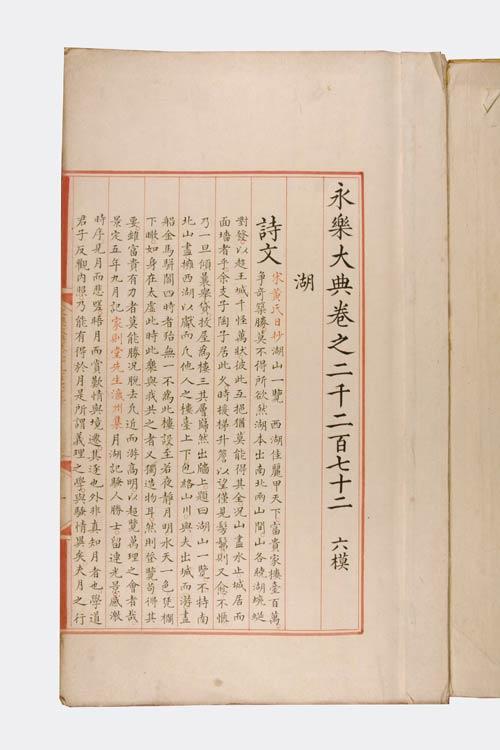 永樂大典卷之二千二百七十二 六模
湖
詩文 宋黃氏日抄湖山一覽 西湖佳麗甲天下富貴家樓臺百萬
爭奇築勝莫不得所欲然湖本出南北兩山間山各繞湖蜿蜒
對發以起王城千怪萬狀彼此互挹猶莫能得其全況山盡水止城居而
面墻者乎余支子陶子居此久時接梯升簷以望僅見髣髴則又愈不愜
乃一旦傾囊舉貸拔屋爲樓三其層巋然出牆上題曰湖山一覽不特南
北山盡擁西湖以獻而凡他人之樓臺上下包絡山川與夫出城而游畫
船金馬駢闐四時者殆無一不爲此樓設至若夜靜月明水天一色凭欄
下瞰如身在太虛此時此樂與我共之者又獨造物耳然則登覽苟得其
要雖富貴有力者莫能勝況脫去凡近而游高明以超覽萬理之會者哉
景定五年九月記家則堂先生瀛州集月湖記騷人勝士留連光景感激
時序見月而悲晤月而賞歎情與境遷其逐也外非真知月者也學道
君子反觀內照乃能有得於月是所謂義理之學與騷情異矣夫月之行